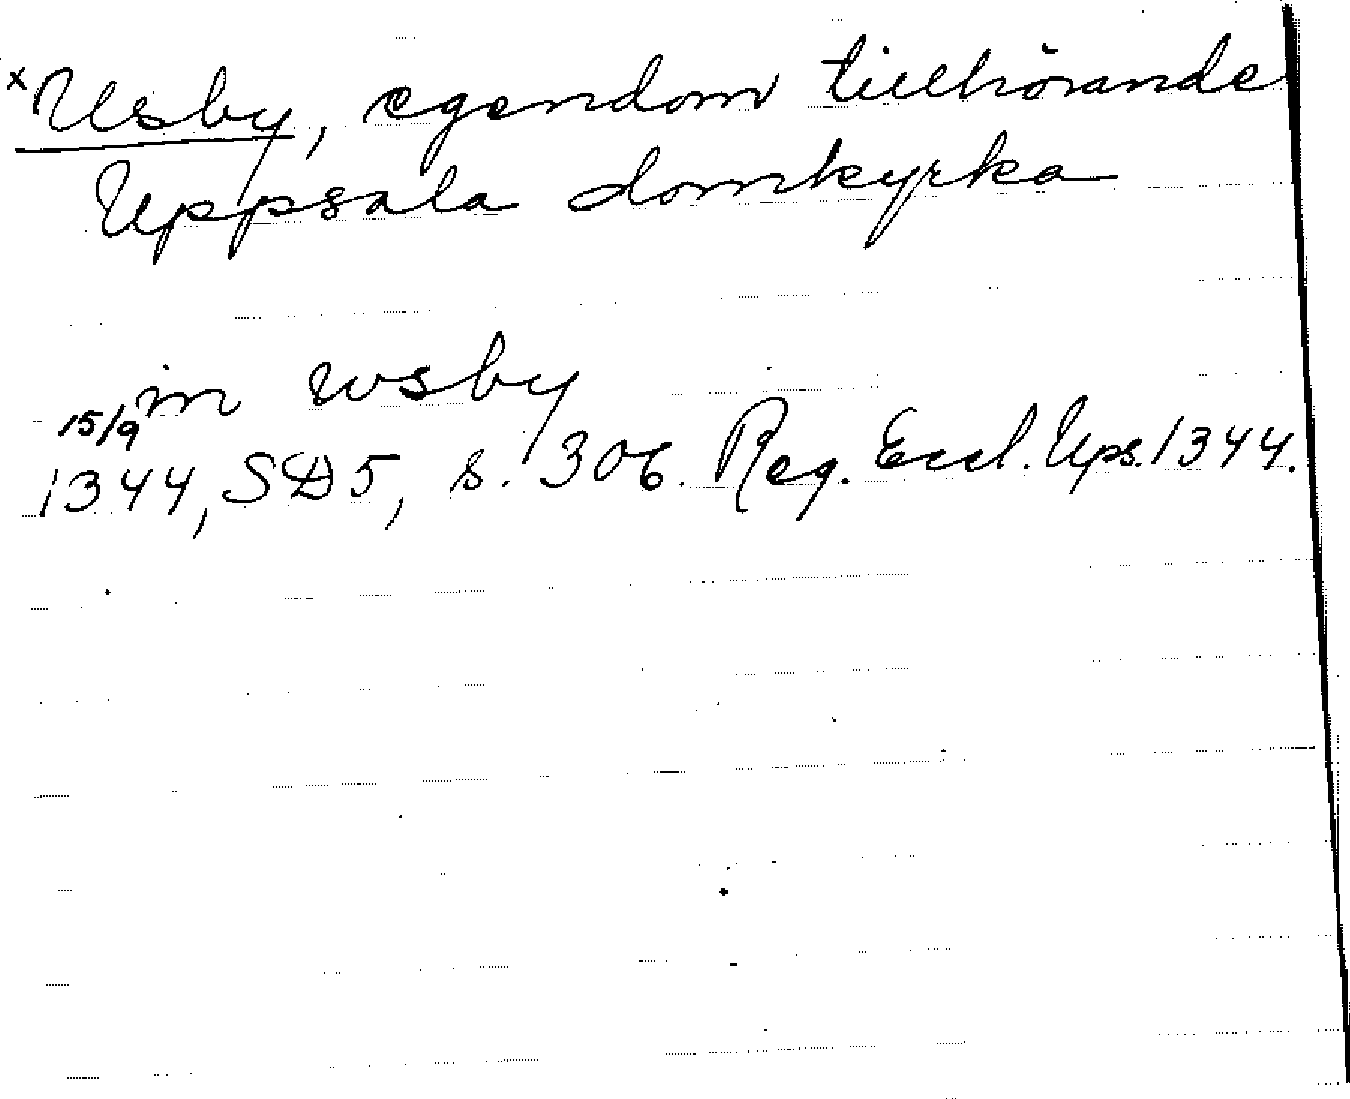 x Usby, egendom tillhörande
Uppsala domkyrka
in wsby
15/9
1344, SD5, s. 306. Reg. Eccl. Ups. 1344.